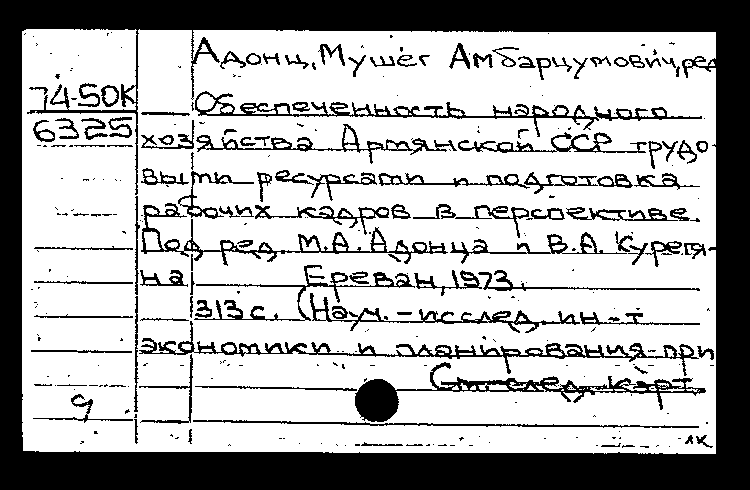 Адонц, Мушег Амбарцумович, ред
74-50К
6325
Обеспеченность народного
хозяйства Армянской ССР трудо-
выми ресурсами и подготовка
рабочих кадров в перспективе.
Под ред. М.А. Адонца и В.А. Курегя-
на Ереван, 1973.
313 с. (Науч.-исслед. ин-т
экономики и планирования при
См. след. карт.
9
лк